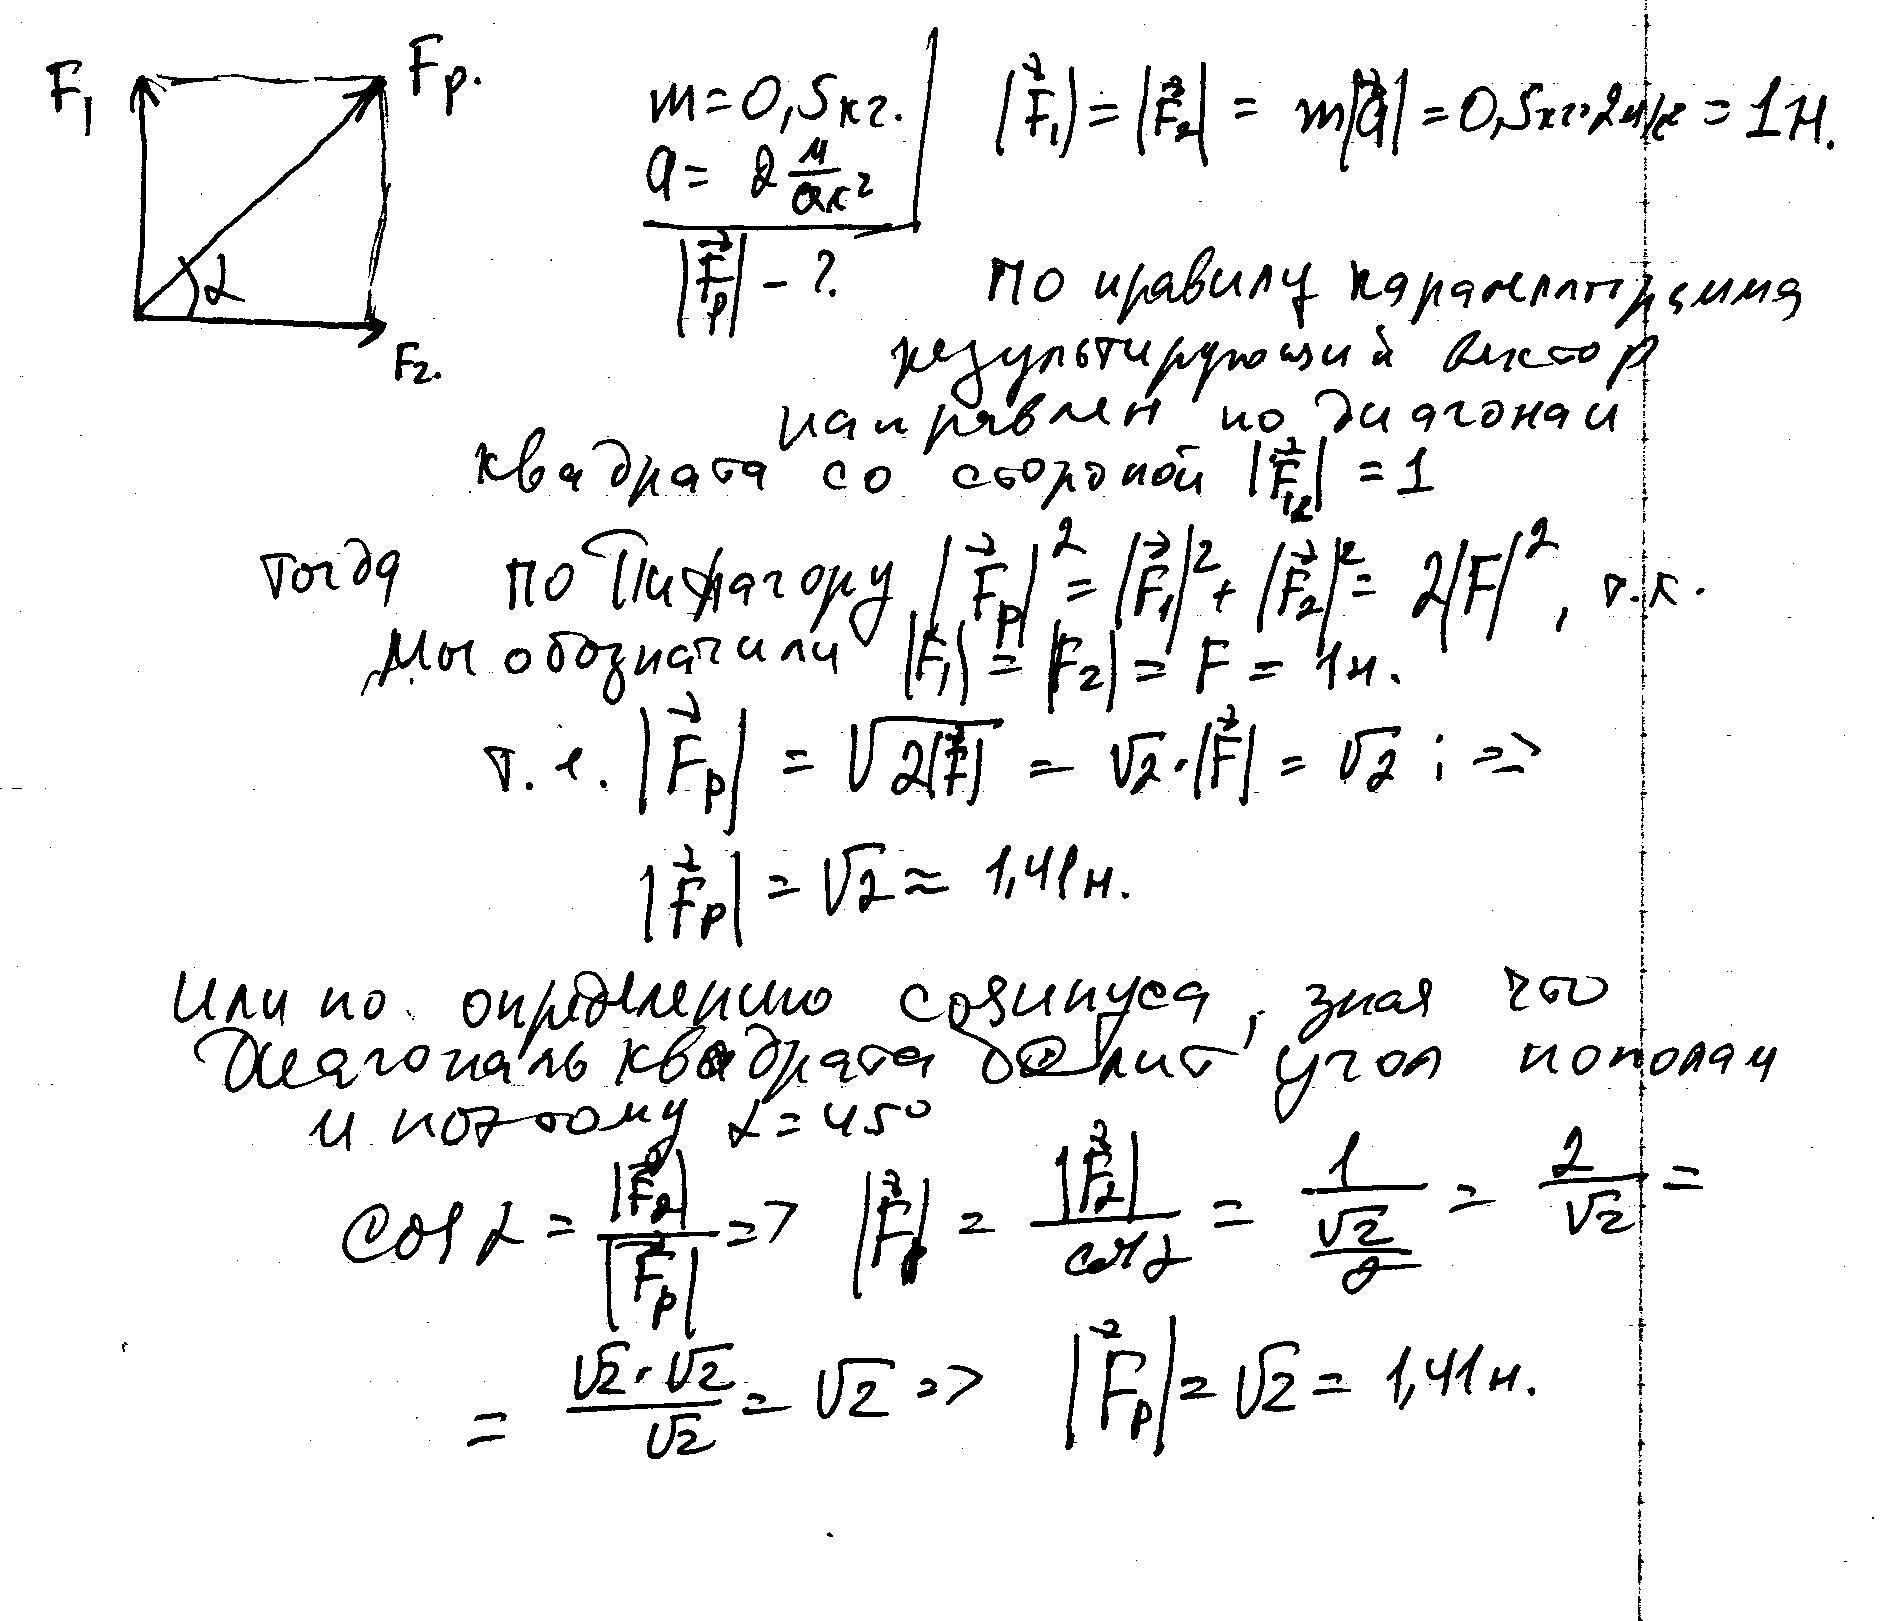 F₁
Fр.
α
F₂.
m = 0,5 кг.
a = 2 м/сек²
|F⃗р| – ?
|F⃗₁| = |F⃗₂| = m|a⃗| = 0,5кг·2м/с² = 1Н.
по правилу параллелограмма
результирующий вектор
направлен по диагонали
квадрата со стороной |F⃗₁₂| = 1
тогда по Пифагору |F⃗р|² = |F⃗₁|² + |F⃗₂|² = 2|F|², т.к.
мы обозначили |F₁| = |F₂| = F = 1н.
т.е. |F⃗р| = √2|F⃗| = √2·|F⃗| = √2 ; =>
|F⃗р| = √2 ≈ 1,41н.
Или по определению косинуса, зная что
диагональ квадрата делит угол пополам
и поэтому α = 45°
cos α = |F⃗₂|/|F⃗р| => |F⃗р| = |F⃗₂|/cos α = 1/(√2/2) = 2/√2 =
= √2·√2/√2 = √2 => |F⃗р| = √2 = 1,41н.